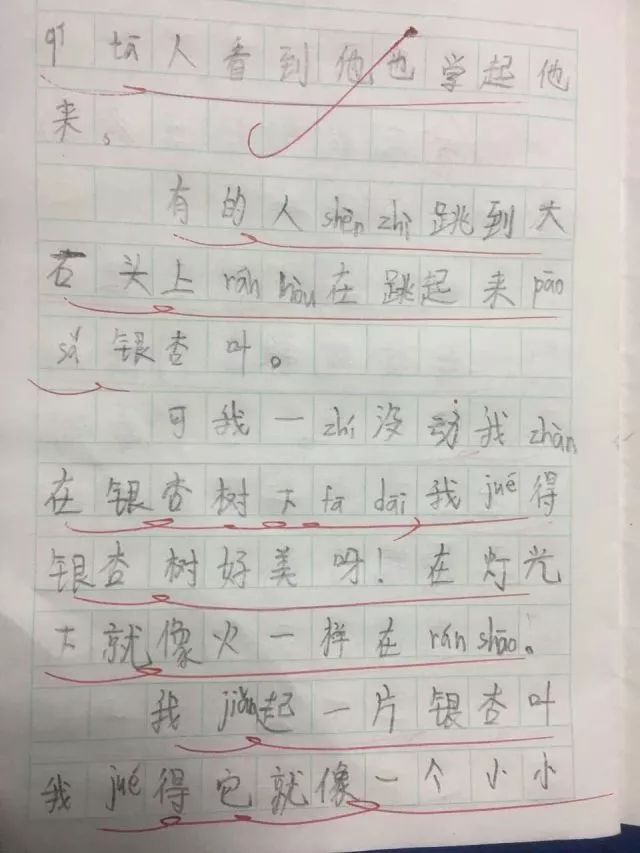 qí tā人看到他也学起他
来。
有的人shèn zhì跳到大
石头上rán hòu在跳起来pāo
sǎ银杏叶。
可我一zhí没动我zhàn
在银杏树下fā dāi我jué得
银杏树好美呀！在灯光
下就像火一样在rán shāo。
我jiǎn起一片银杏叶
我jué得它就像一个小小